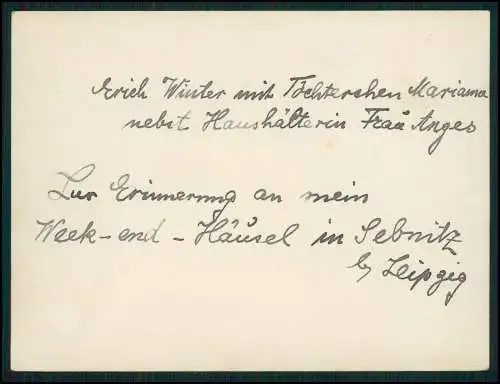 Erich Winter mit Töchterchen Marianna
nebst Haushälterin Frau Anges
Zur Erinnerung an mein
Week-end-Häusel in Sebnitz
b/ Leipzig